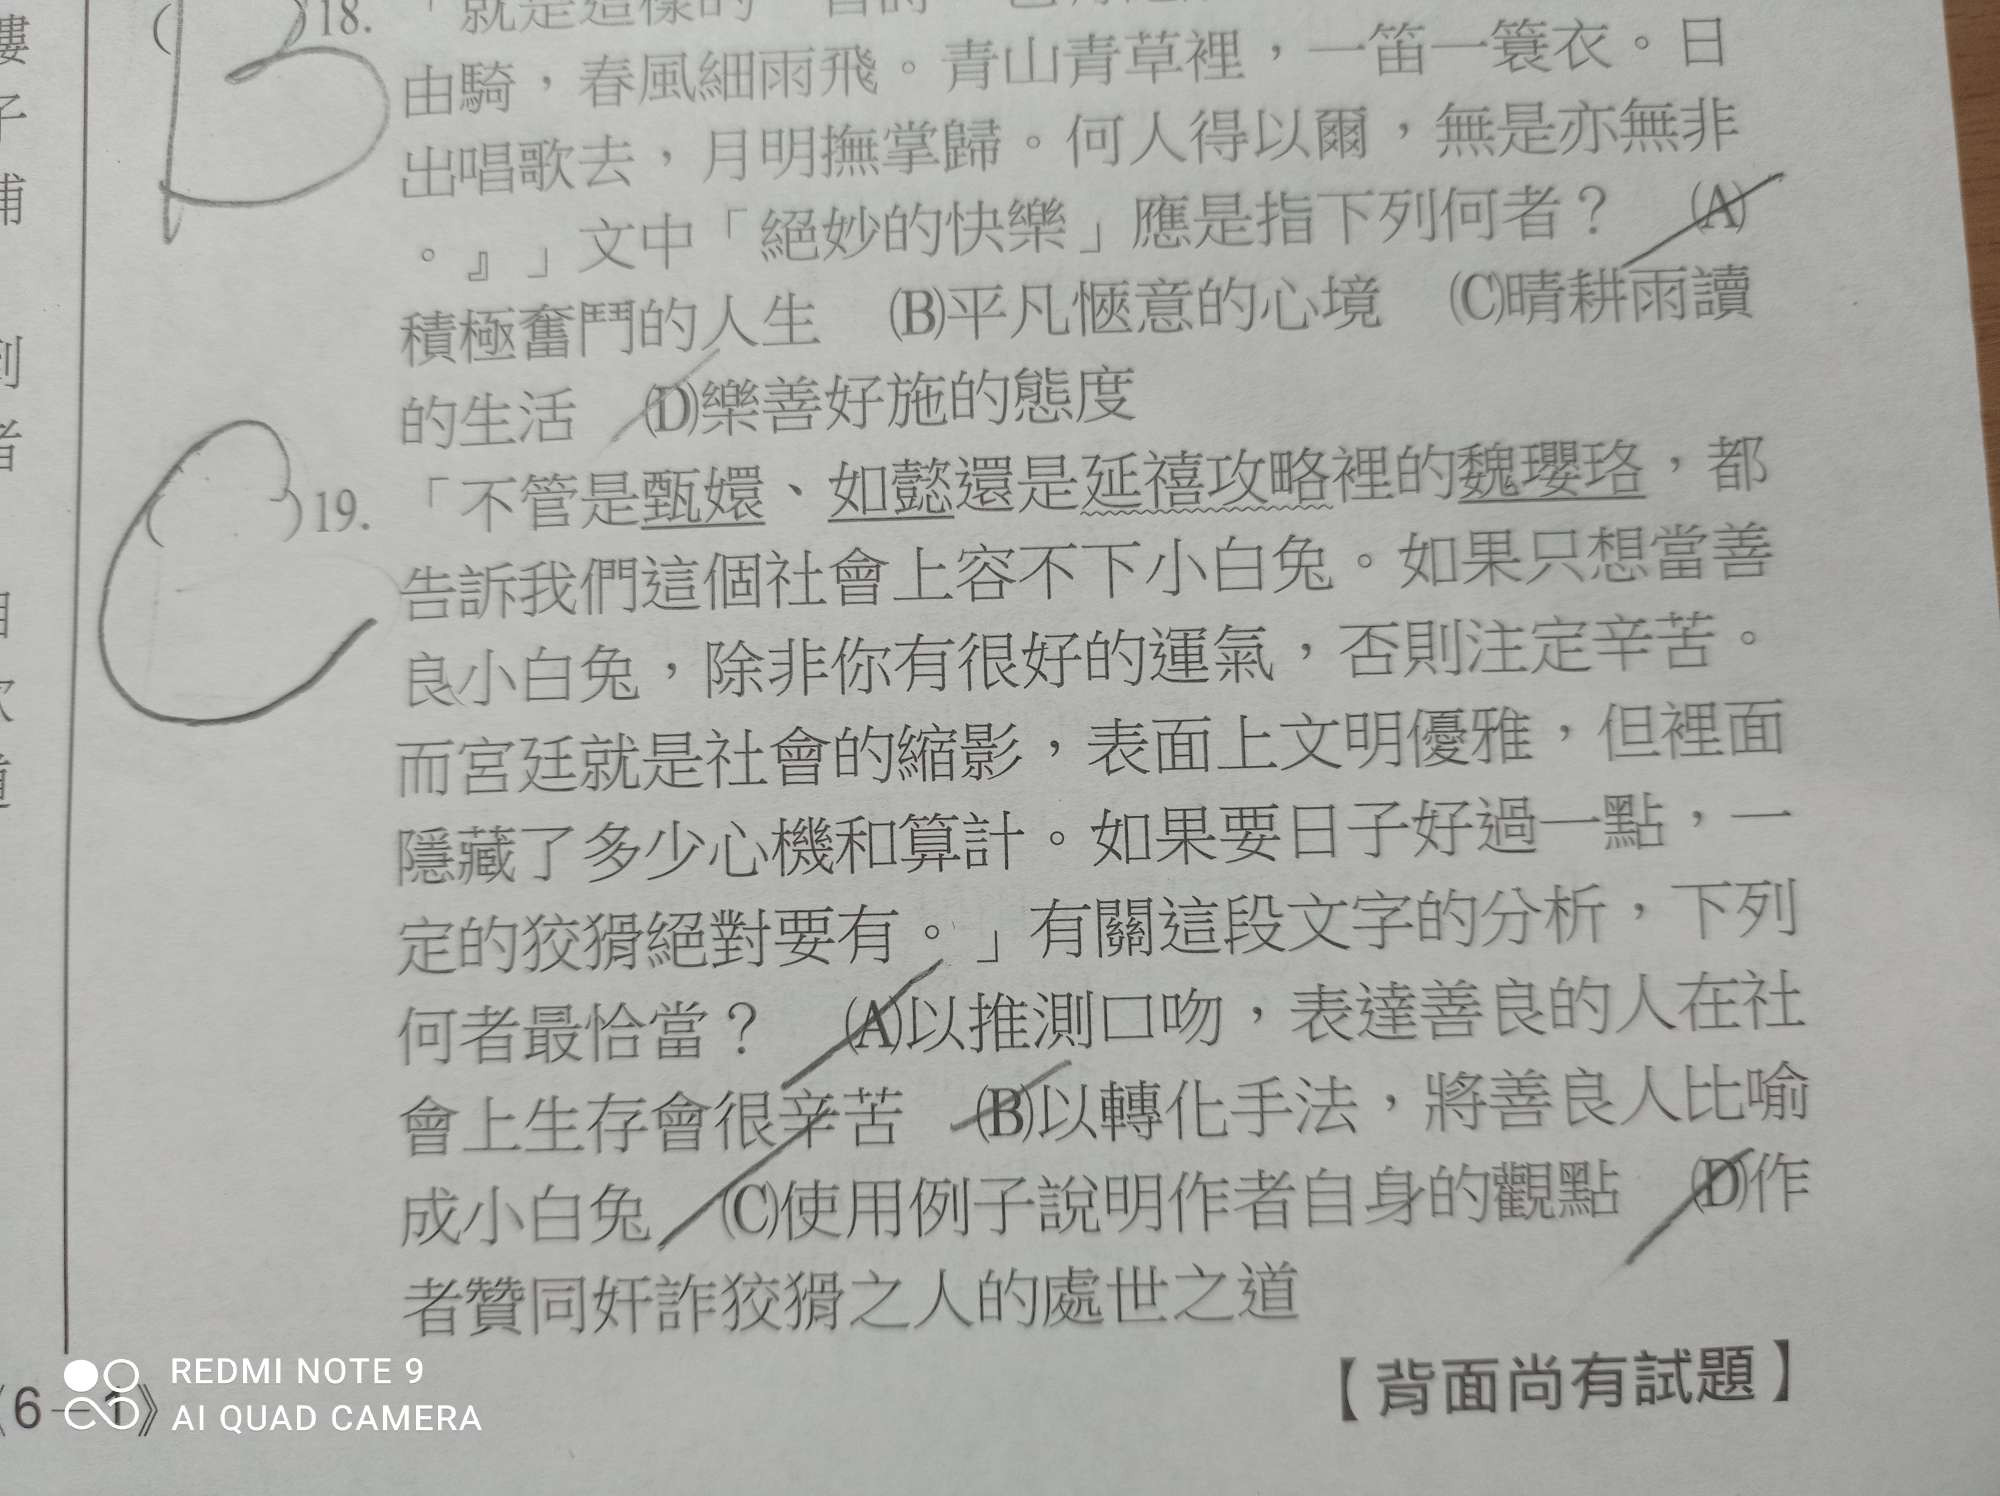 B
( )18.「就是這樣的
由騎，春風細雨飛。青山青草裡，一笛一簑衣。日
出唱歌去，月明撫掌歸。何人得以爾，無是亦無非
。』」文中「絕妙的快樂」應是指下列何者？ (A)
積極奮鬥的人生 (B)平凡愜意的心境 (C)晴耕雨讀
的生活 (D)樂善好施的態度
C
( )19.「不管是甄嬛、如懿還是延禧攻略裡的魏瓔珞，都
告訴我們這個社會上容不下小白兔。如果只想當善
良小白兔，除非你有很好的運氣，否則注定辛苦。
而宮廷就是社會的縮影，表面上文明優雅，但裡面
隱藏了多少心機和算計。如果要日子好過一點，一
定的狡猾絕對要有。」有關這段文字的分析，下列
何者最恰當？ (A)以推測口吻，表達善良的人在社
會上生存會很辛苦 (B)以轉化手法，將善良人比喻
成小白兔 (C)使用例子說明作者自身的觀點 (D)作
者贊同奸詐狡猾之人的處世之道
【背面尚有試題】
《6－1》
REDMI NOTE 9
AI QUAD CAMERA